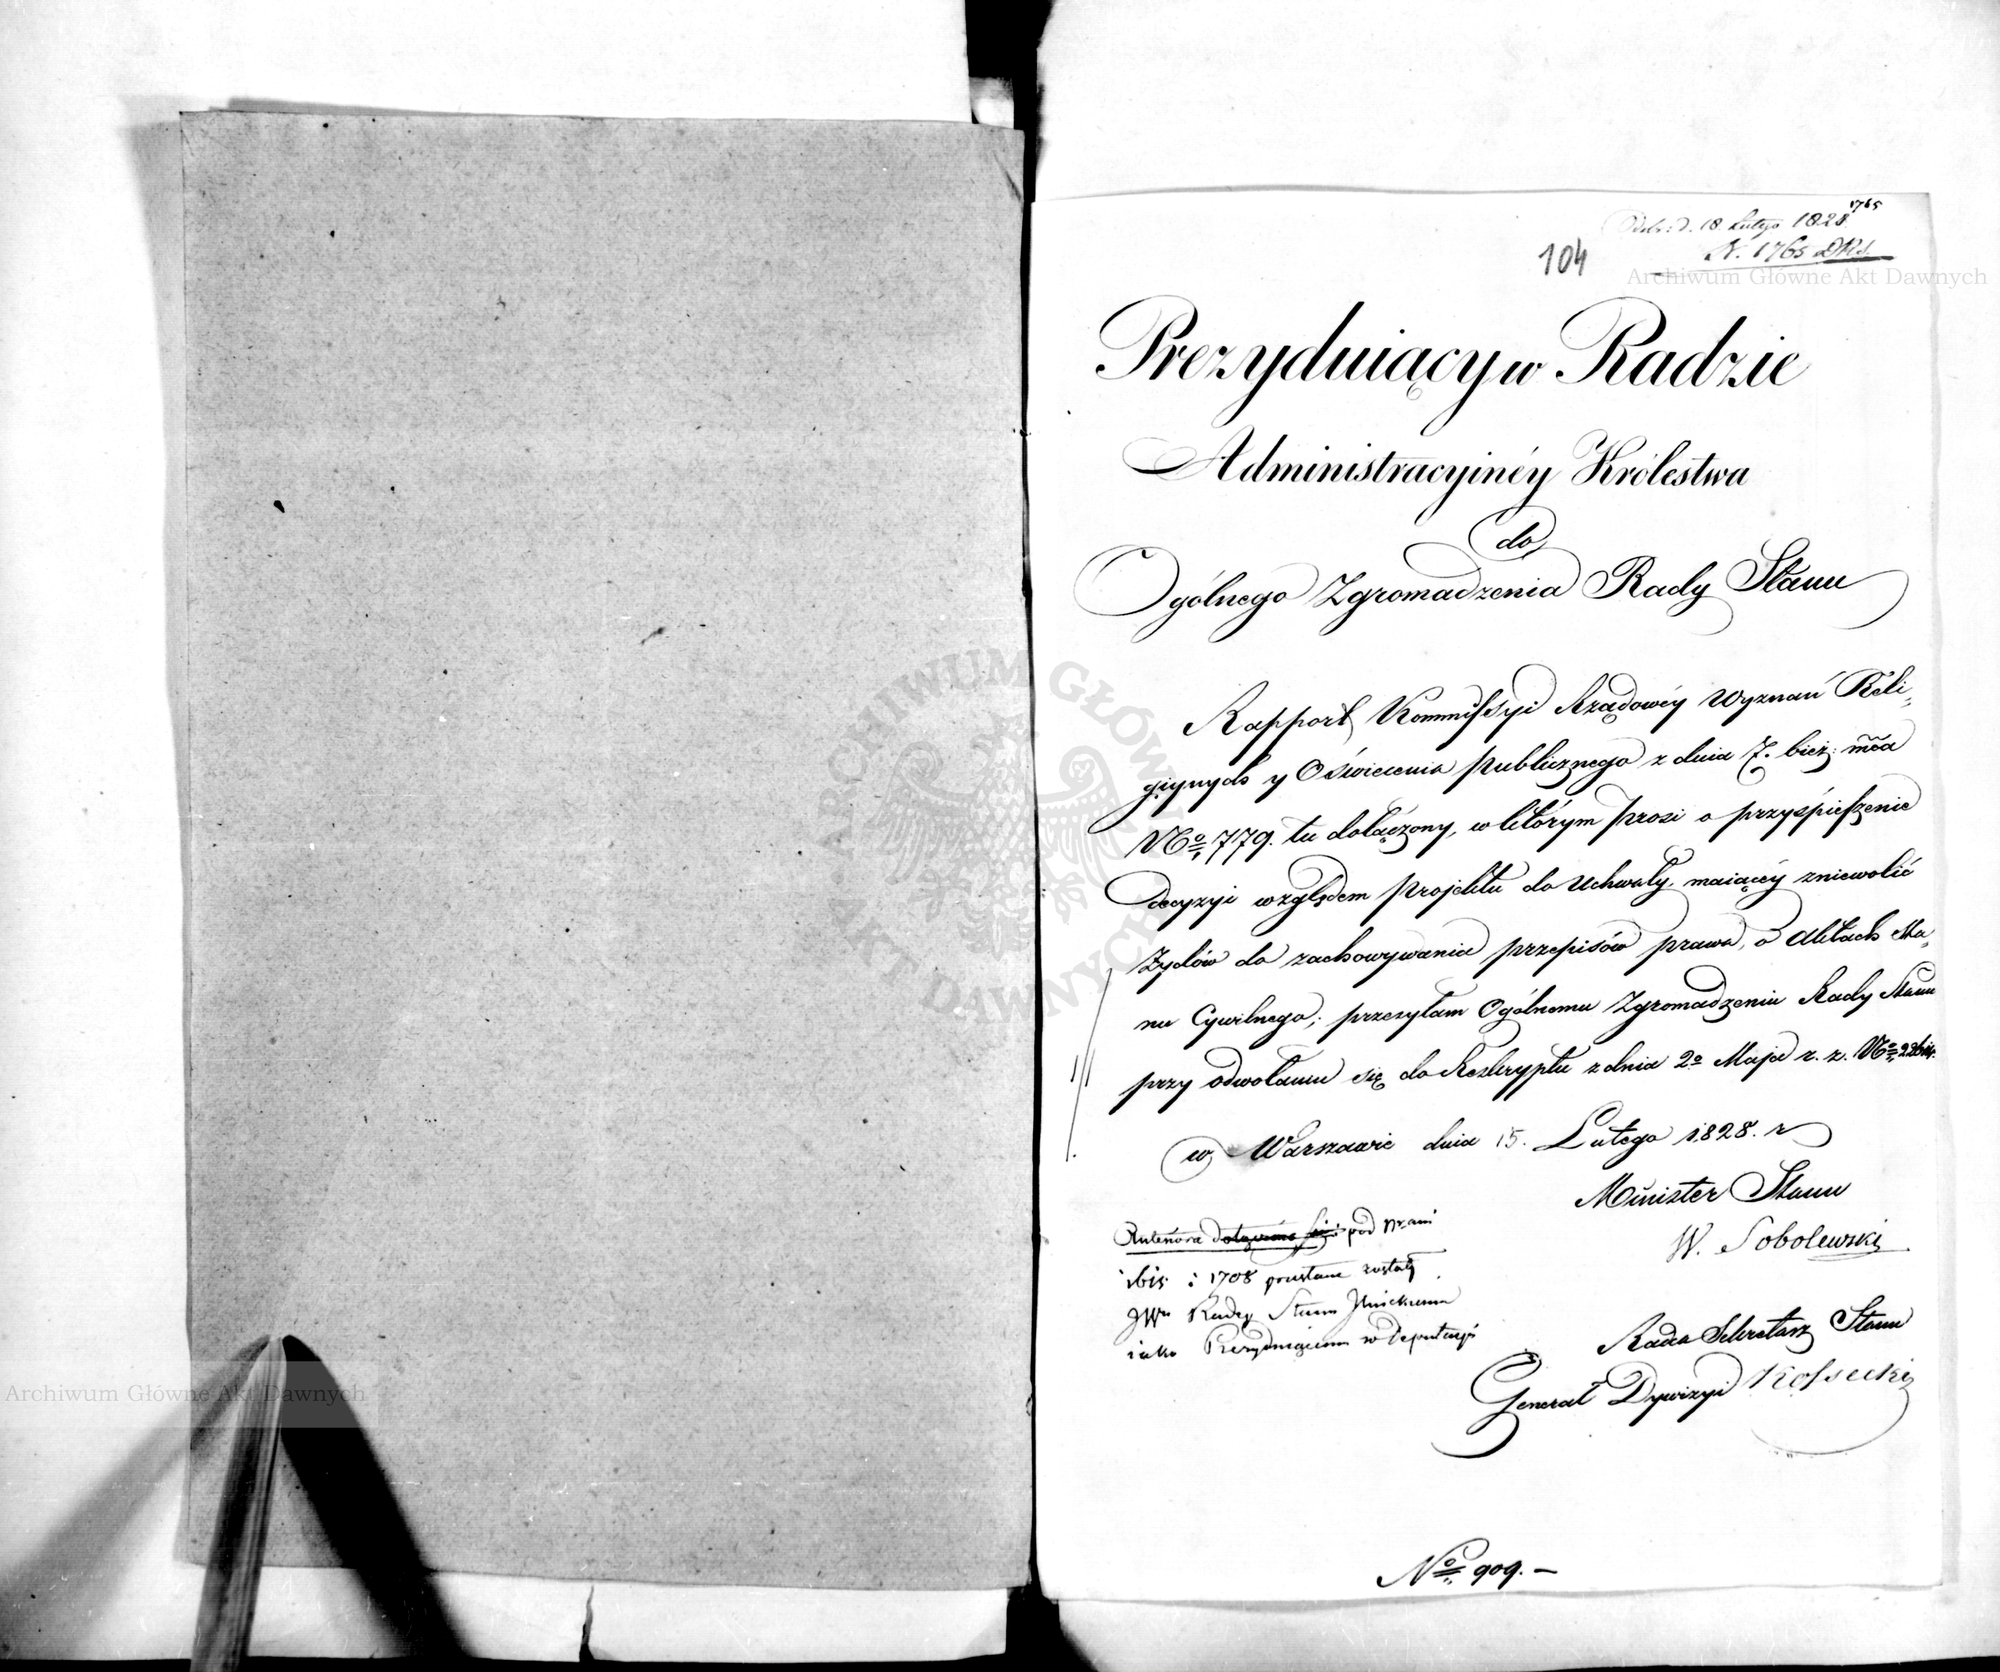 1765
Odebr: d. 18 Lutego 1828
N. 1765 DRS.
104
Archiwum Główne Akt Dawnych
Prezyduiący w Radzie
Administracyinéy Królestwa
do
Ogólnego Zgromadzenia Rady Stanu
Rapport Kommissyi Rządowéy Wyznań Reli-
giynych y Oświecenia publicznego z dnia 7. bież. mca
No 779. tu dołączony, w którym prosi o przyśpieszenie
decyzyi względem projektu do Uchwały, maiącéy zniewolić
Żydów do zachowywania przepisów prawa, o Aktach Sta-
nu Cywilnego; przesyłam Ogólnemu Zgromadzeniu Rady Stanu
przy odwołaniu się do Reskryptu z dnia 2o Maja r. z. No 22bis.
w Warszawie dnia 15. Lutego 1828. r
Minister Stanu
W. Sobolewski
Anteriora dotyczące się: pod Nrami
ibis i 1708 przesłane zostały
JWu Radcy Stanu
iako Prezyduiącemu w Deputacyi
Radca Sekretarz Stanu
Generał Dywizyi Kossecki
No 909. —
ARCHIWUM GŁÓWNE AKT DAWNYCH
Archiwum Główne Akt Dawnych